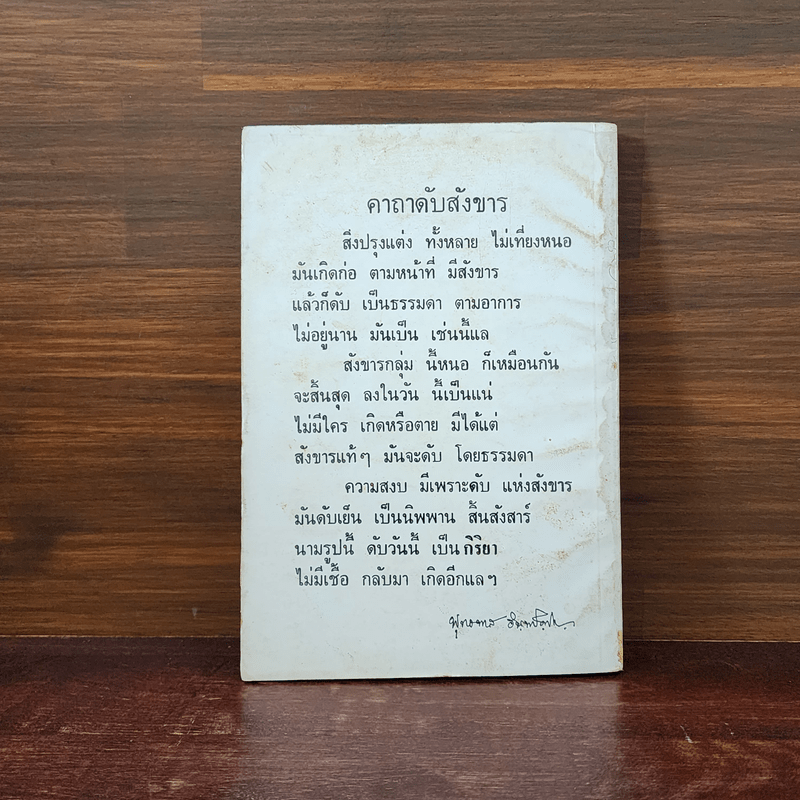 คาถาดับสังขาร
สิ่งปรุงแต่ง ทั้งหลาย ไม่เที่ยงหนอ
มันเกิดก่อ ตามหน้าที่ มีสังขาร
แล้วก็ดับ เป็นธรรมดา ตามอาการ
ไม่อยู่นาน มันเป็น เช่นนี้แล
สังขารกลุ่ม นี้หนอ ก็เหมือนกัน
จะสิ้นสุด ลงในวัน นี้เป็นแน่
ไม่มีใคร เกิดหรือตาย มีได้แต่
สังขารแท้ๆ มันจะดับ โดยธรรมดา
ความสงบ มีเพราะดับ แห่งสังขาร
มันดับเย็น เป็นนิพพาน สิ้นสังสาร์
นามรูปนี้ ดับวันนี้ เป็น กิริยา
ไม่มีเชื้อ กลับมา เกิดอีกแลฯ
พุทธทาส อินฺทปญฺโญ